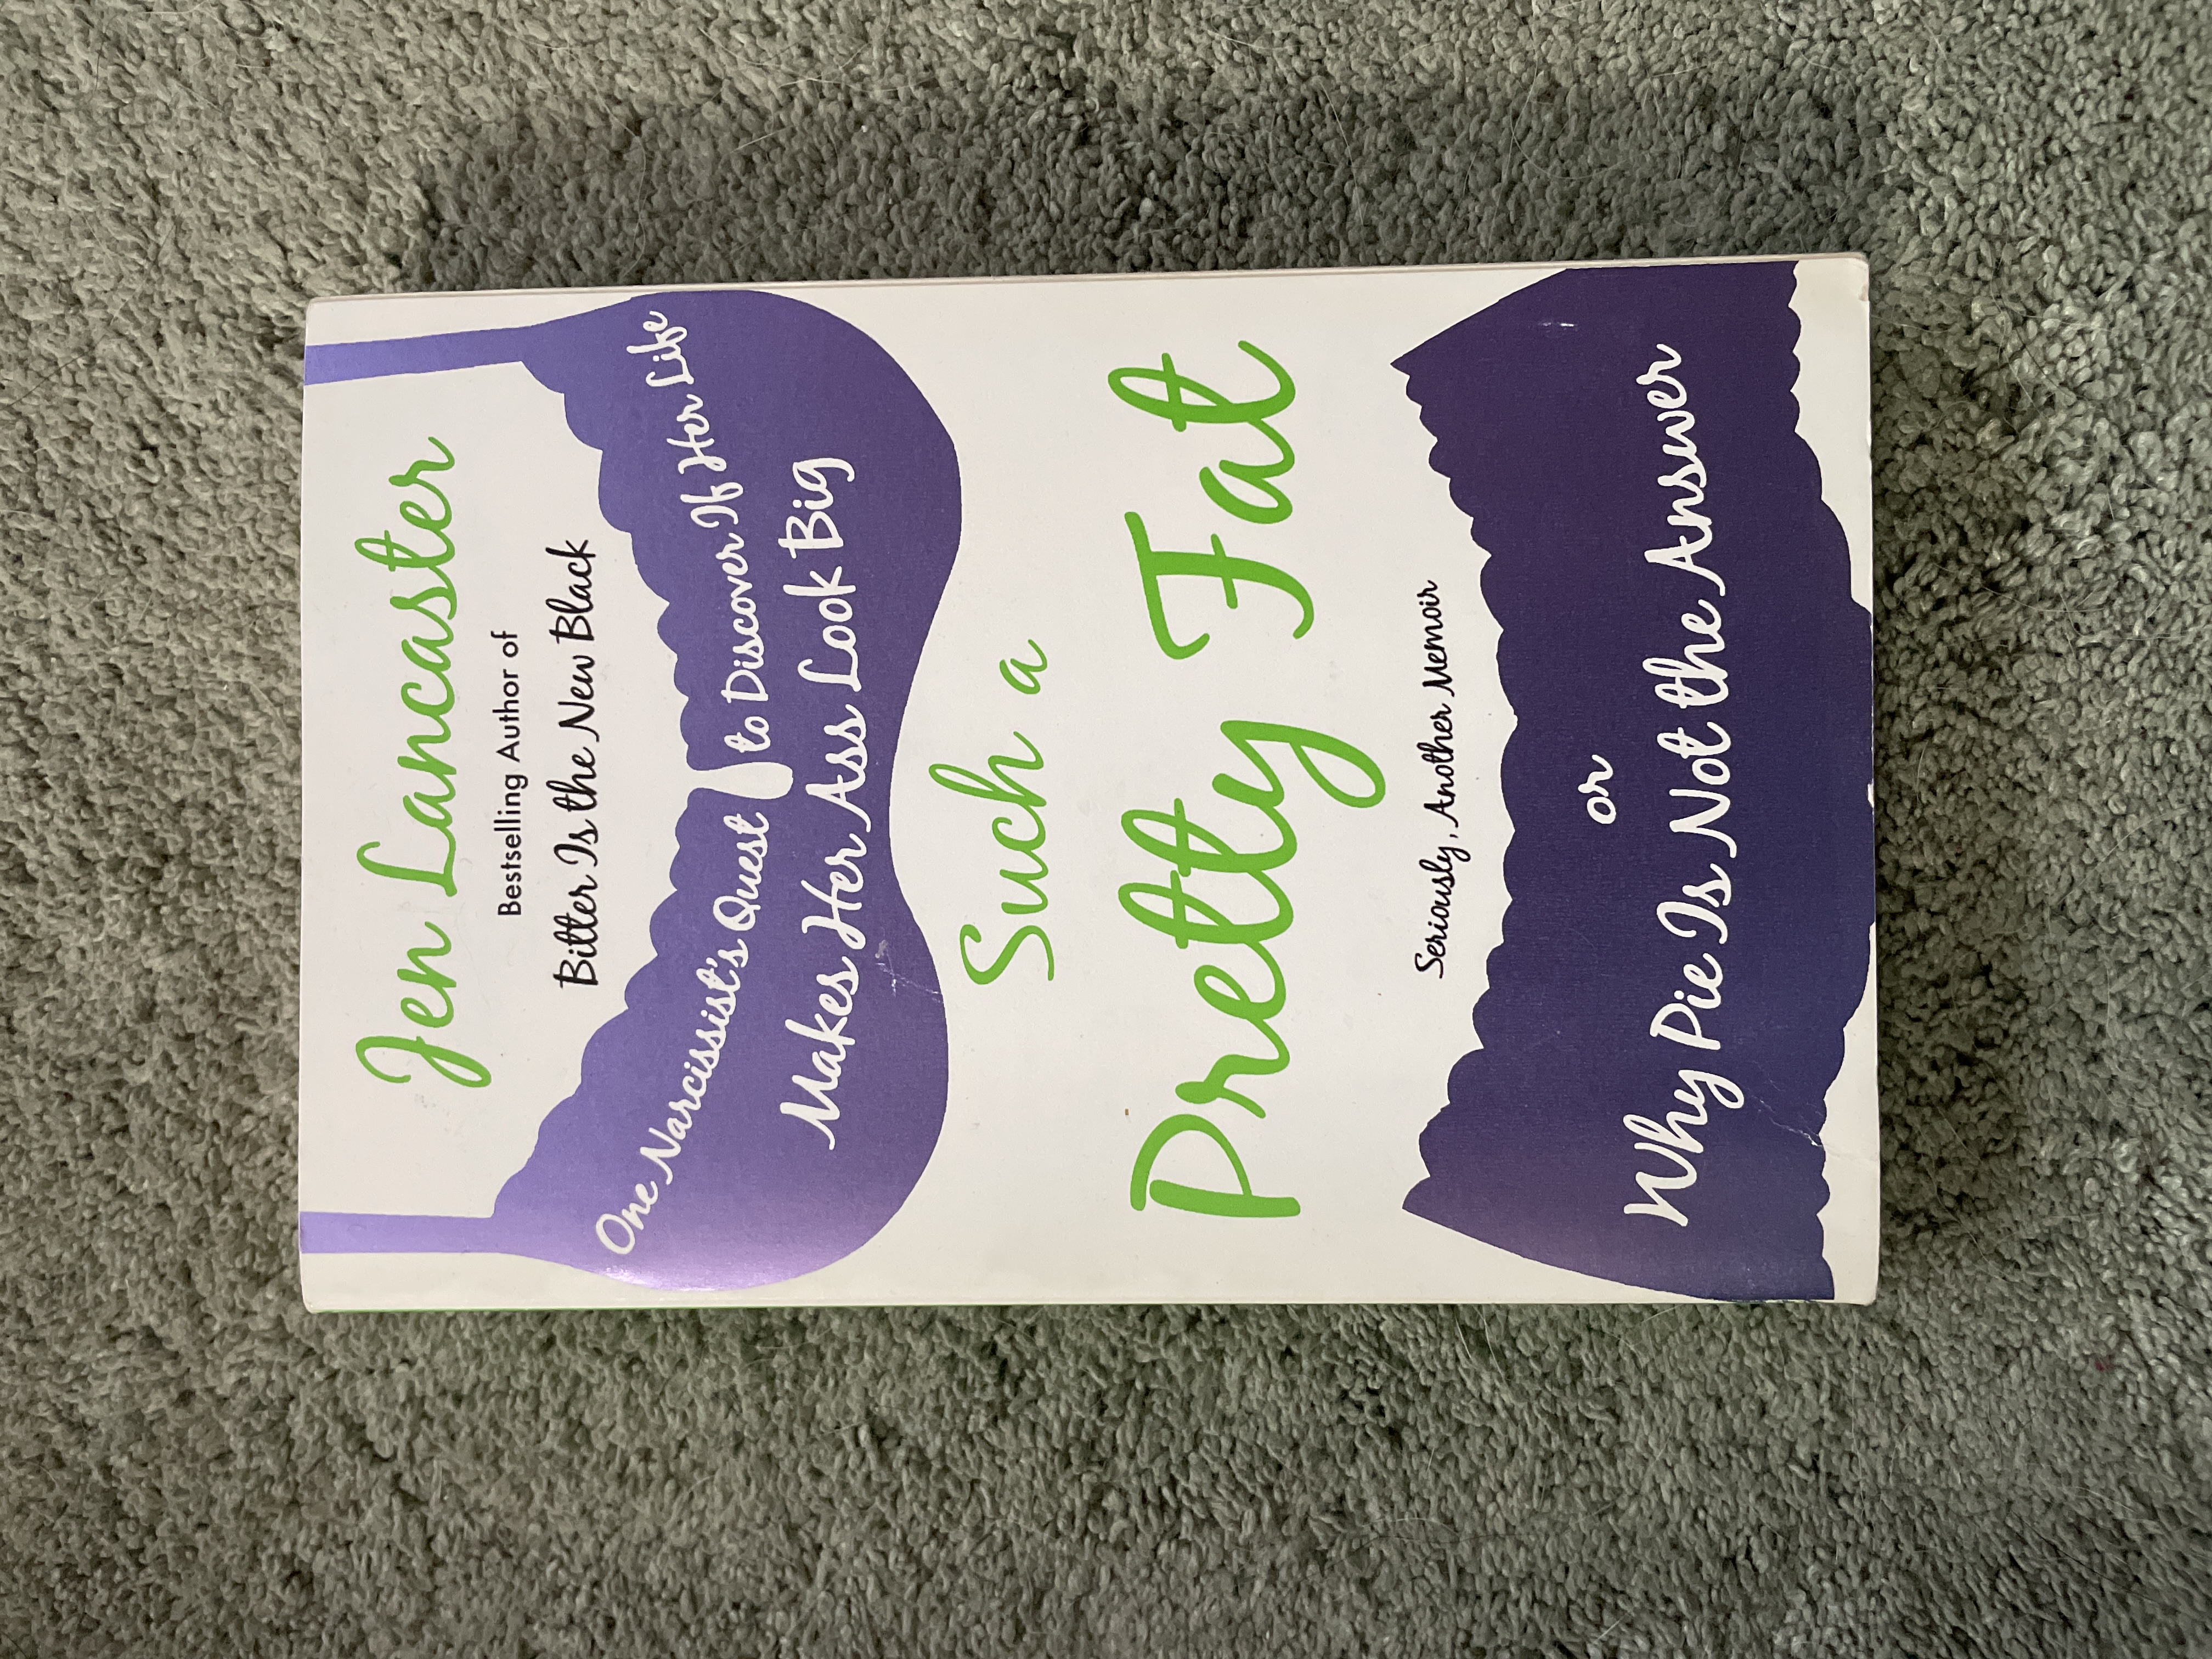 Jen Lancaster
Bestselling Author of
Bitter Is the New Black
One Narcissist's Quest to Discover If Her Life
Makes Her Ass Look Big
Such a
Pretty Fat
Seriously, Another Memoir
or
Why Pie Is Not the Answer